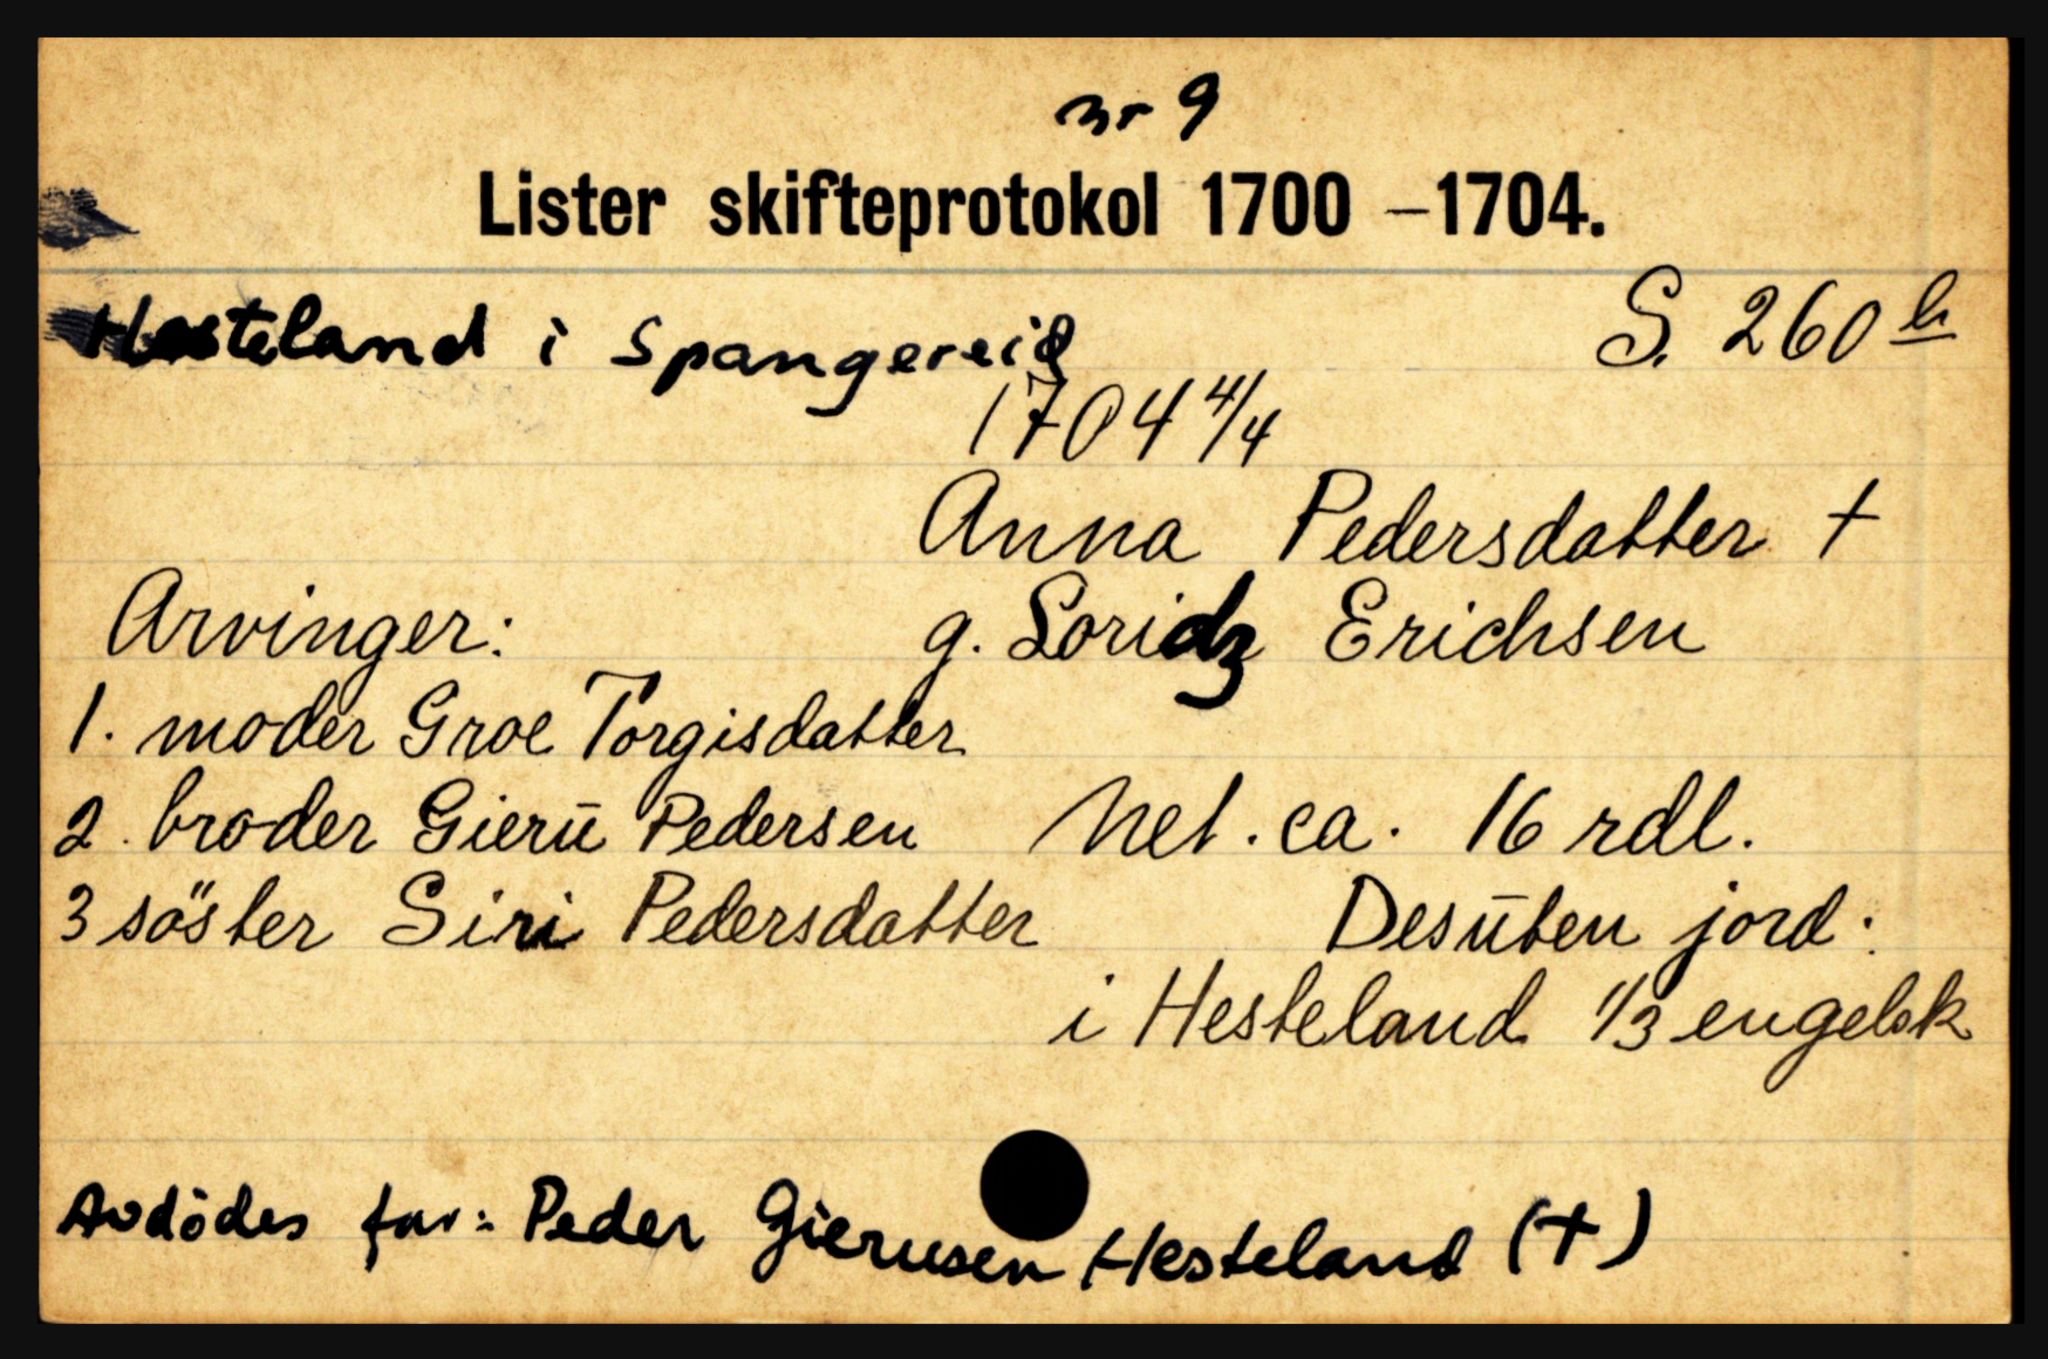 nr 9
Lister skifteprotokol 1700 –1704.
Hesteland i Spangereid
S. 260 b
1704 4/4
Anna Pedersdatter +
Arvinger: g. Loridz Erichsen
1. moder Groe Torgisdatter
2. broder Gierū Pedersen Net. ca. 16 rdl.
3 söster Siri Pedersdatter Desūten jord:
i Hesteland 1/3 engelsk
Avdödes far: Peder Gierusen Hesteland (+)